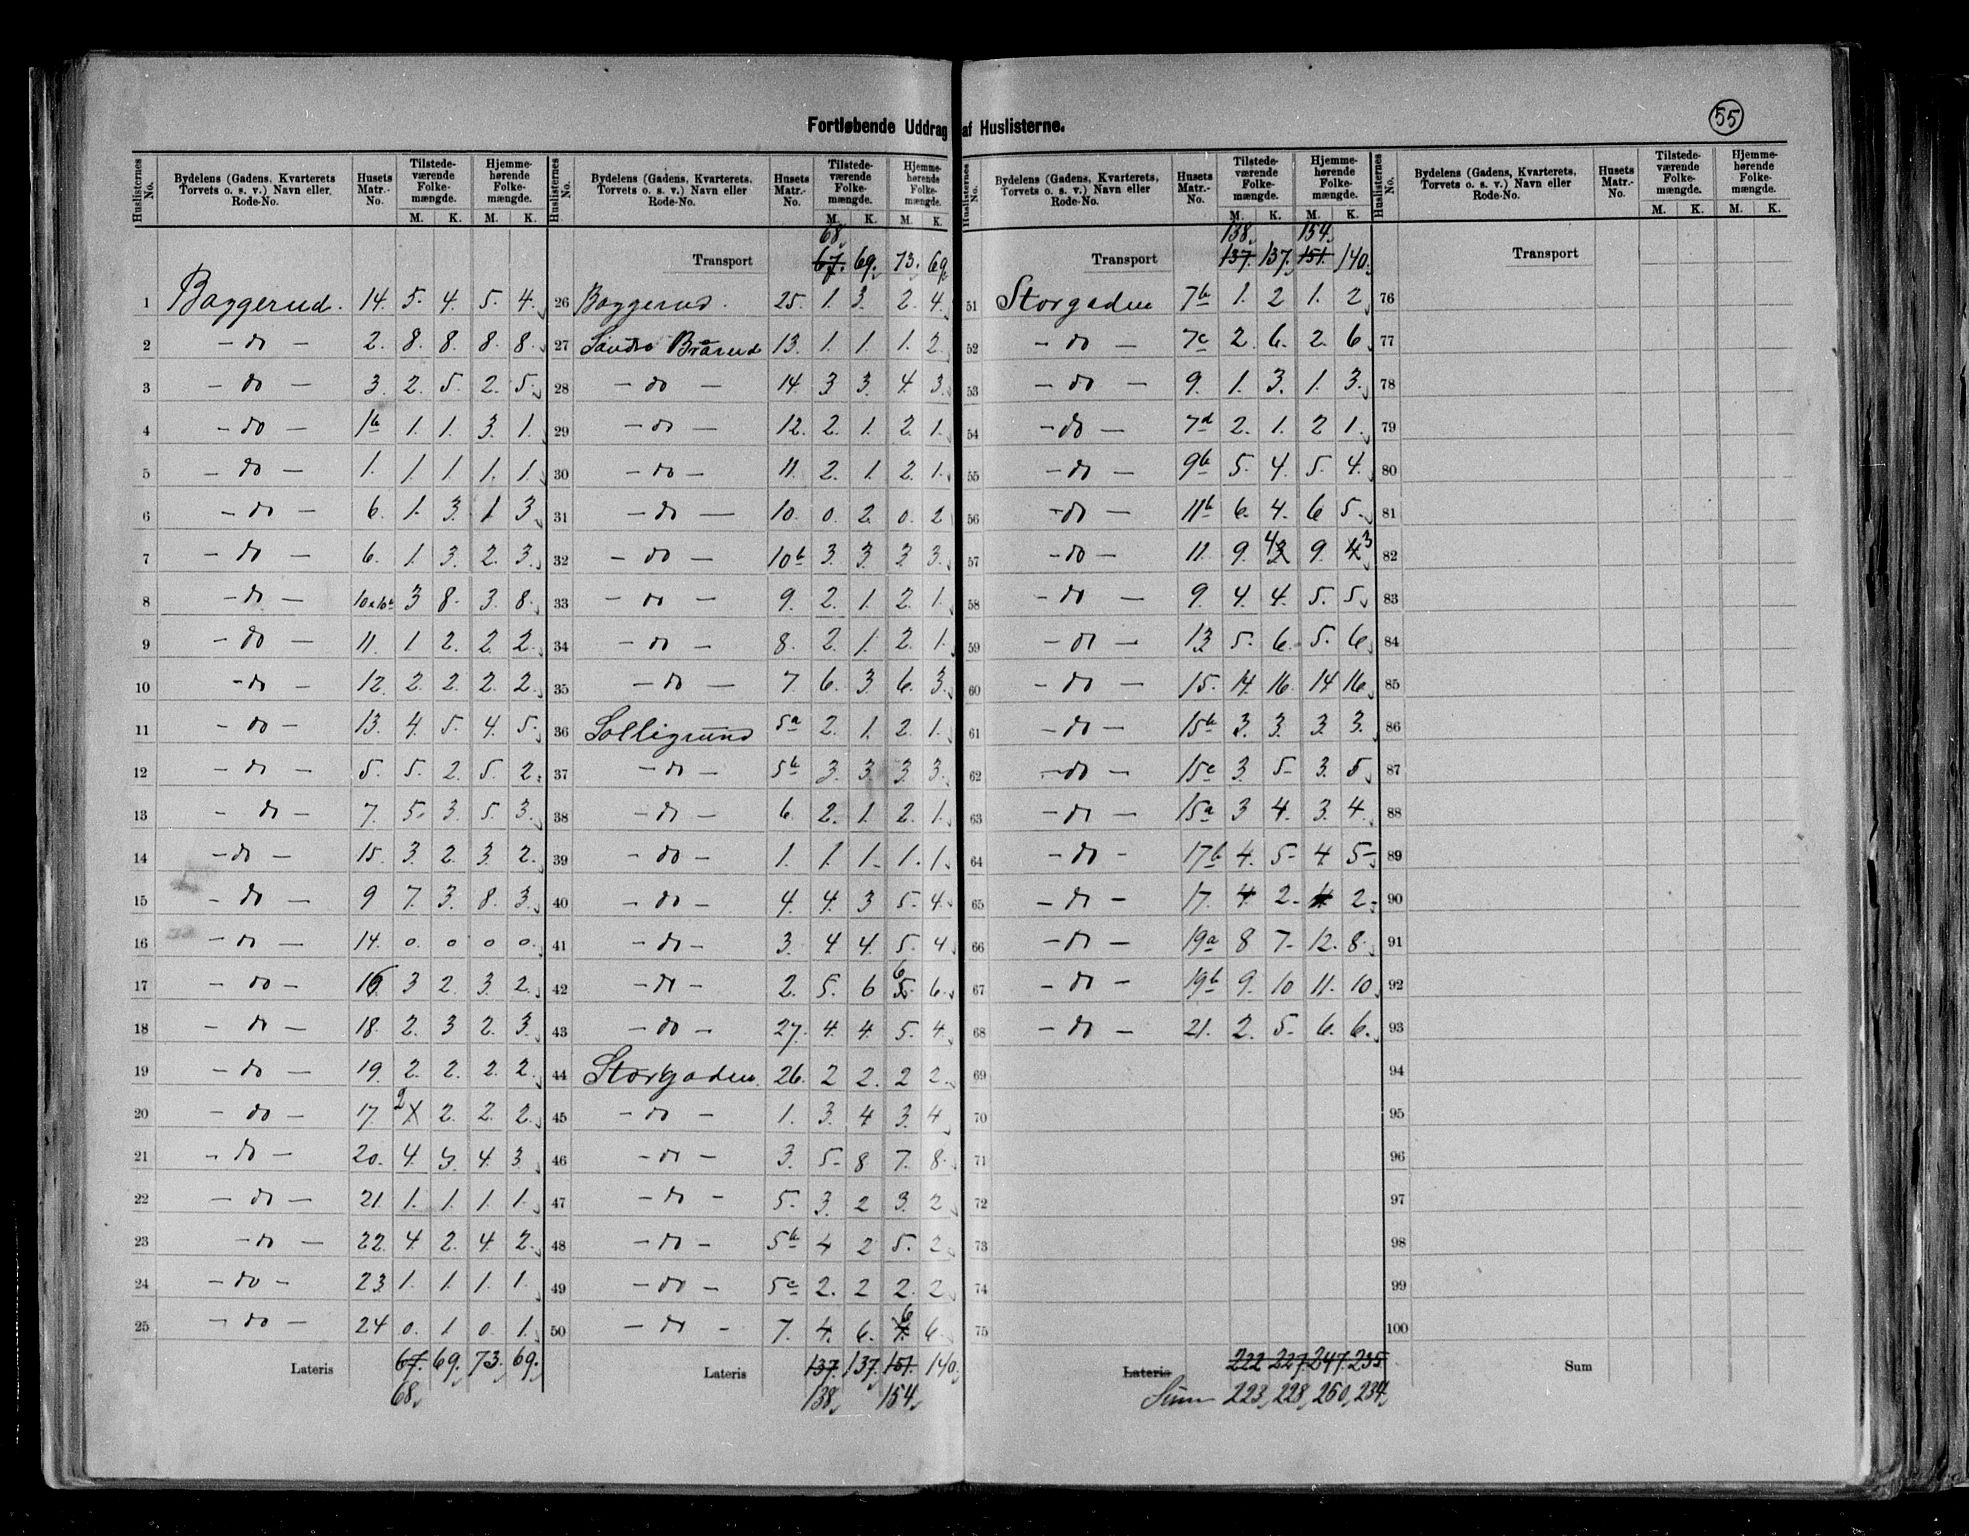 55
Fortløbende Uddrag af Huslisterne.
Huslisternes No. Bydelens (Gadens, Kvarterets Torvets o. s. v.) Navn eller Rode-No. Husets Matr.-No. Tilstedeværende Folkemængde. M. K. Hjemmehørende Folkemængde. M. K.
1 Baggerud. 14. 5. 4. 5. 4.
2 - do - 2. 8. 8. 8. 8.
3 - do - 3. 2. 5. 2. 5.
4 - do - 1b 1. 1. 3. 1.
5 - do - 1. 1. 1. 1. 1.
6 - do - 6. 1. 3. 1. 3.
7 - do - 6. 1. 3. 2. 3.
8 - do - 3 8. 3. 8.
9 - do - 11. 1 2. 2. 2.
10 - do - 12. 2. 2. 2. 2.
11 - do - 13. 4. 5. 4. 5.
12 - do - 5. 5. 2. 5. 2.
13 - do - 7. 5. 3. 5. 3.
14 - do - 15. 3. 2. 3. 2.
15 - do - 9 7. 3. 8. 3.
16 - do - 14. 0. 0 0 0.
17 - do - 16. 3 2. 3. 2.
18 - do - 18. 2. 3 2. 3.
19 - do - 19. 2. 2. 2. 2.
20 - do - 17. 2 2. 2. 2.
21 - do - 20. 4. 3. 4. 3.
22 - do - 21. 1. 1. 1. 1.
23 - do - 22. 4. 2. 4. 2.
24 - do - 23. 1. 1. 1. 1.
25 - do - 24 0. 1 0. 1.
Lateris 67. 69. 73. 69.
68.
Huslisternes No. Bydelens (Gadens, Kvarterets, Torvets o. s. v.) Navn eller Rode-No. Husets Matr.-No. Tilstedeværende Folkemængde. M. K. Hjemmehørende Folkemængde. M. K.
68
Transport 67. 69. 73. 69.
26 Baggerud. 25. 1. 3. 2. 4.
27 Søndre Brårud 13. 1. 1. 1. 2.
28 - do - 14 3 3. 4. 3.
29 - do - 12. 2. 1. 2. 1.
30 - do - 11. 2. 1. 2. 1.
31 - do - 10. 0. 2. 0. 2
32 - do - 10b 3. 3. 3 3.
33 - do - 9. 2. 1. 2. 1.
34 - do - 8. 2. 1. 2. 1.
35 - do - 7. 6. 3 6. 3.
36 Solligrund 5a 2. 1. 2. 1.
37 - do - 5b 3. 3. 3. 3.
38 - do - 6. 2. 1. 2. 1.
39 - do - 1. 1. 1. 1. 1.
40 - do - 4. 4. 3 5. 4.
41 - do - 3. 4 4. 5. 4
42 - do - 2. 5. 6 6 5. 6.
43 - do - 27. 4. 4. 5. 4
44 Storgaden. 26. 2 2. 2 2.
45 - do - 1. 3. 4 3. 4
46 - do - 3. 5. 8 7. 8.
47 - do - 5. 3. 2 3. 2
48 - do - 5b 4 2 5. 2
49 - do - 5c 2. 2 2. 2
50 - do - 7. 4. 6. 6 6
Lateris 137. 137. 151. 140.
138. 154.
Huslisternes No. Bydelens (Gadens, Kvarterets, Torvets o. s. v.) Navn eller Rode-No. Husets Matr.-No. Tilstedeværende Folkemængde. M. K. Hjemmehørende Folkemængde. M. K.
138. 154.
Transport 137. 137. 151. 140.
51 Storgaden 7b 1. 2 1. 2
52 - do - 7c 2. 6. 2. 6
53 - do - 9. 1. 3. 1. 3.
54 - do - 7d 2. 1. 2 1.
55 - do - 9b 5. 4. 5. 4.
56 - do - 11b 6. 4. 6 5.
57 - do - 11. 9. 4 3 9. 4 3
58 - do - 9. 4. 4. 5. 5
59 - do - 13 5. 6. 5. 6
60 - do - 15. 14. 16. 14 16
61 - do - 15b 3. 3. 3. 3.
62 - do - 15c 3. 5- 3. 5
63 - do - 15a 3 4. 3. 4.
64 - do - 17b 4. 5- 4 5-
65 - do - 17. 4 2. 4. 2.
66 - do - 19a 8 7- 12. 8.
67 - do - 19b 9. 10 11. 10
68 - do - 21. 2. 5- 6. 6.
69
70
71
72
73
74
75
Lateris 222 227. 247. 235
Sum 223, 228, 250, 234,
Huslisternes No. Bydelens (Gadens, Kvarterets, Torvets o. s. v.) Navn eller Rode-No. Husets Matr.-No. Tilstedeværende Folkemængde. M. K. Hjemmehørende Folkemængde. M. K.
Transport
76
77
78
79
80
81
82
83
84
85
86
87
88
89
90
91
92
93
94
95
96
97
98
99
100
Sum